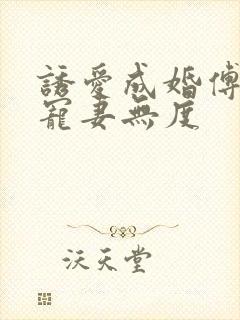 誘愛成婚傅
寵妻無度
沃天堂